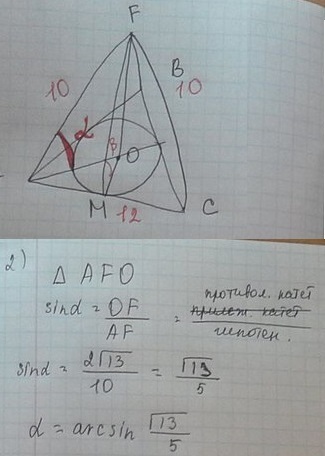 F
B
10
10
α
β
O
M
12
C
2)
△ AFO
sinα = OF/AF = противол. катет / прилеж. катет гипотен.
sinα = 2√13/10 = √13/5
α = arcsin √13/5